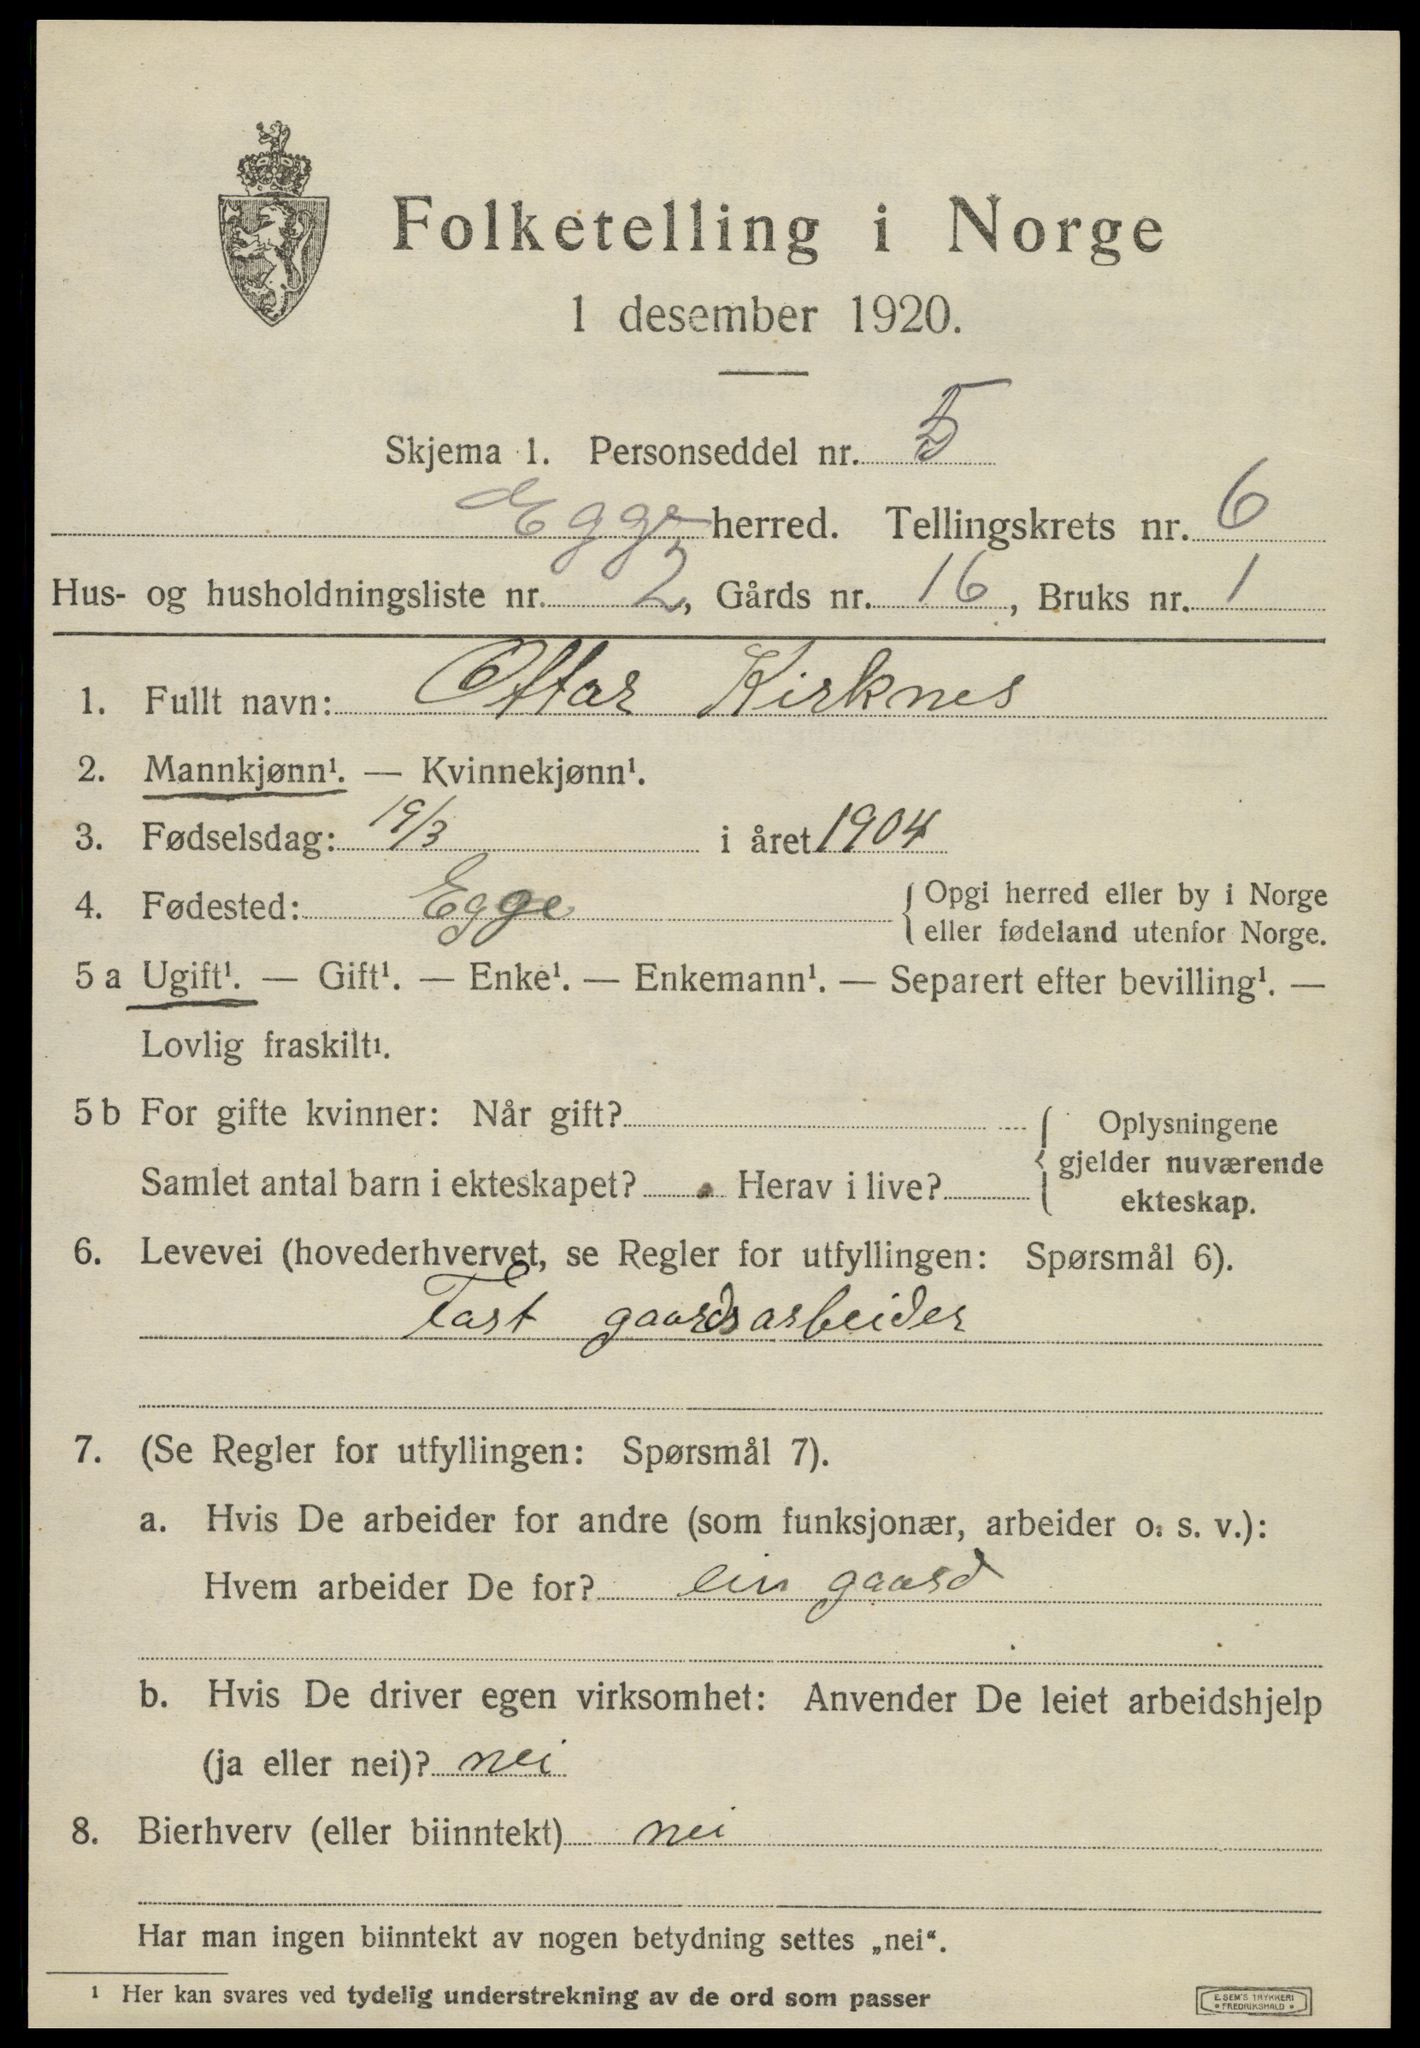 Folketelling i Norge
1 desember 1920.
Skjema 1. Personseddel nr. 5
Egge herred. Tellingskrets nr. 6
Hus- og husholdningsliste nr. 2, Gårds nr. 16, Bruks nr. 1
1. Fullt navn: Ottar Kirknes
2. Mannkjønn¹. — Kvinnekjønn¹.
3. Fødselsdag: 19/3 i året 1904
4. Fødested: Egge { Opgi herred eller by i Norge
eller fødeland utenfor Norge.
5 a Ugift¹. — Gift¹. — Enke¹. — Enkemann¹. — Separert efter bevilling¹. —
Lovlig fraskilt¹.
5 b For gifte kvinner: Når gift? { Oplysningene
gjelder nuværende
Samlet antal barn i ekteskapet? Herav i live?
ekteskap.
6. Levevei (hovederhvervet, se Regler for utfyllingen: Spørsmål 6).
Fast gaardsarbeider
7. (Se Regler for utfyllingen: Spørsmål 7).
a. Hvis De arbeider for andre (som funksjonær, arbeider o. s. v.):
Hvem arbeider De for? ein gaard
b. Hvis De driver egen virksomhet: Anvender De leiet arbeidshjelp
(ja eller nei)? nei
8. Bierhverv (eller biinntekt) nei
Har man ingen biinntekt av nogen betydning settes „nei“.
¹ Her kan svares ved tydelig understrekning av de ord som passer
E. SEM'S TRYKKERI
• FREDRIKSHALD •